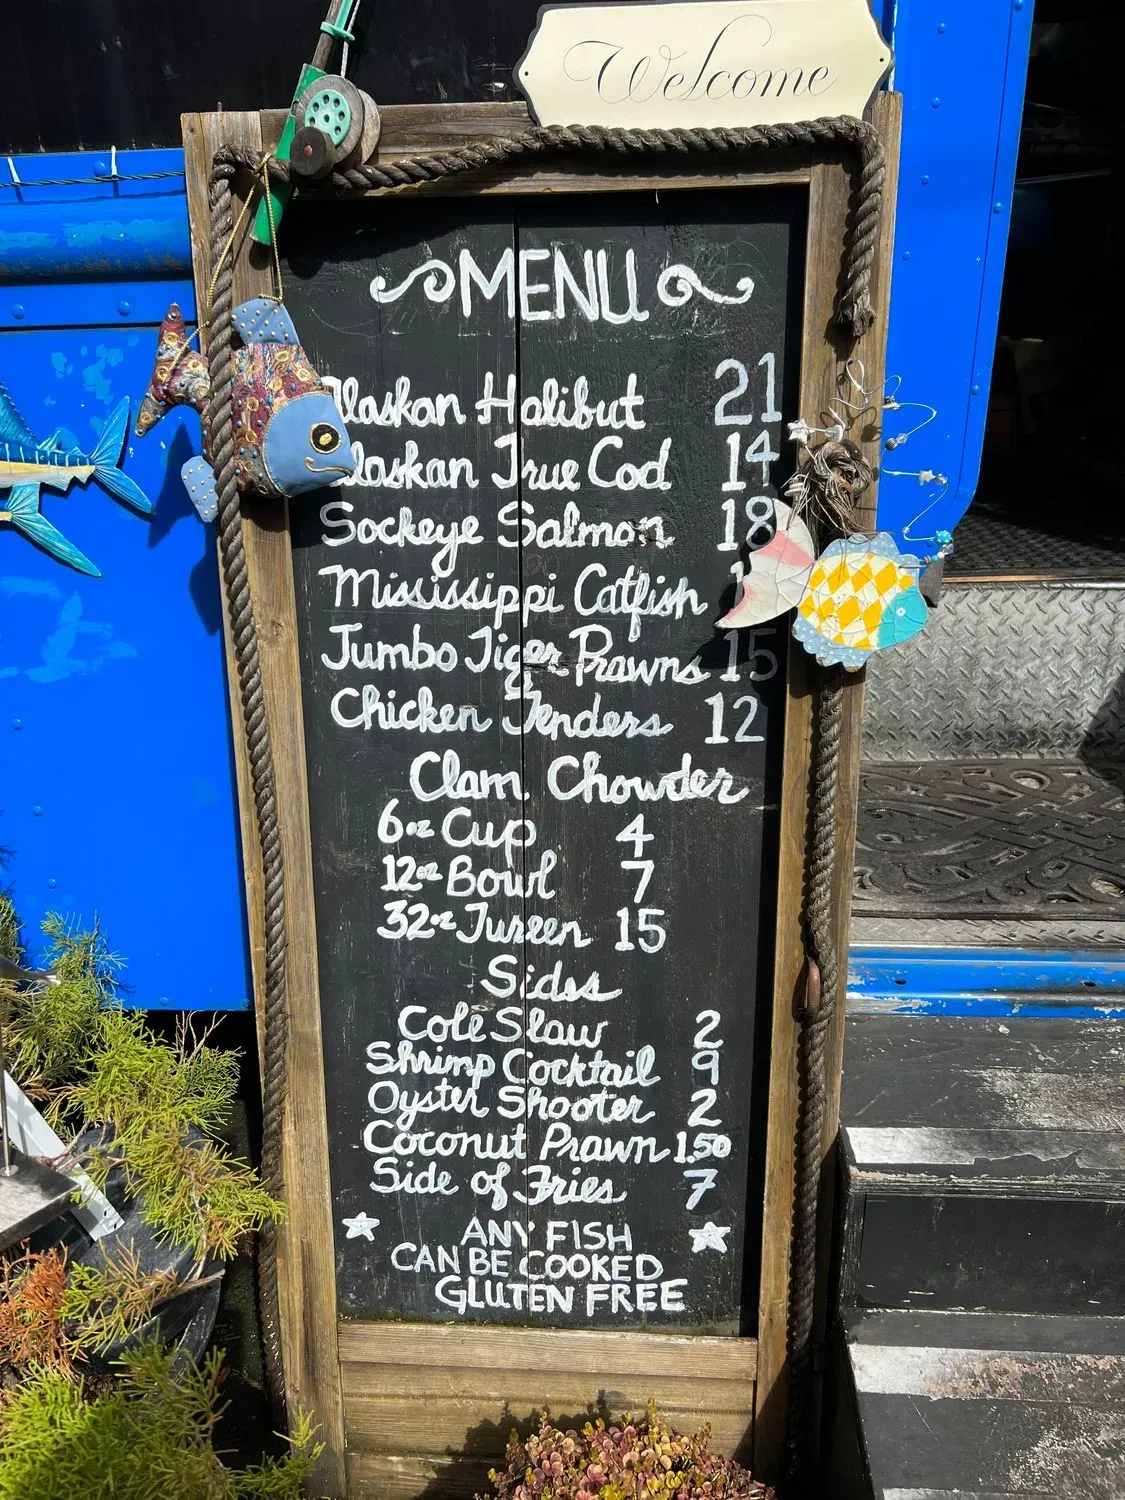 Welcome
MENU
Alaskan Halibut 21
Alaskan True Cod 14
Sockeye Salmon 18
Mississippi Catfish
Jumbo Tiger Prawns 15
Chicken Tenders 12
Clam Chowder
6oz Cup 4
12oz Bowl 7
32oz Tureen 15
Sides
Cole Slaw 2
Shrimp Cocktail 9
Oyster Shooter 2
Coconut Prawn 1.50
Side of Fries 7
ANY FISH
CAN BE COOKED
GLUTEN FREE